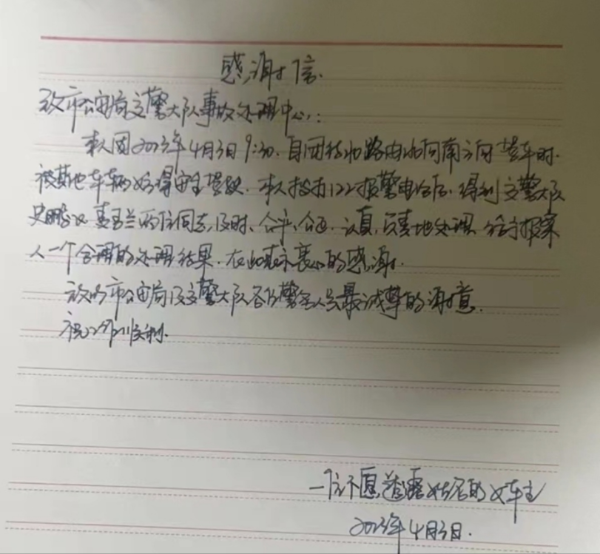 感谢信
致市公安局交警大队事故处理中心:
本人因2023年4月3日9:30.自团结北路由北向南方向 车时.
被其他车辆 . 本人拨打122报警电话后, 得到交警大队
兰两位同志及时、公平、公正、认真、负责地处理 给予报案
人一个合理的处理结果. 在此表示衷心的感谢.
致以市公安局及交警大队各位警务人员最诚挚的谢意.
祝工作顺利.
一位不愿透露姓名的女车主
2023年4月3日.